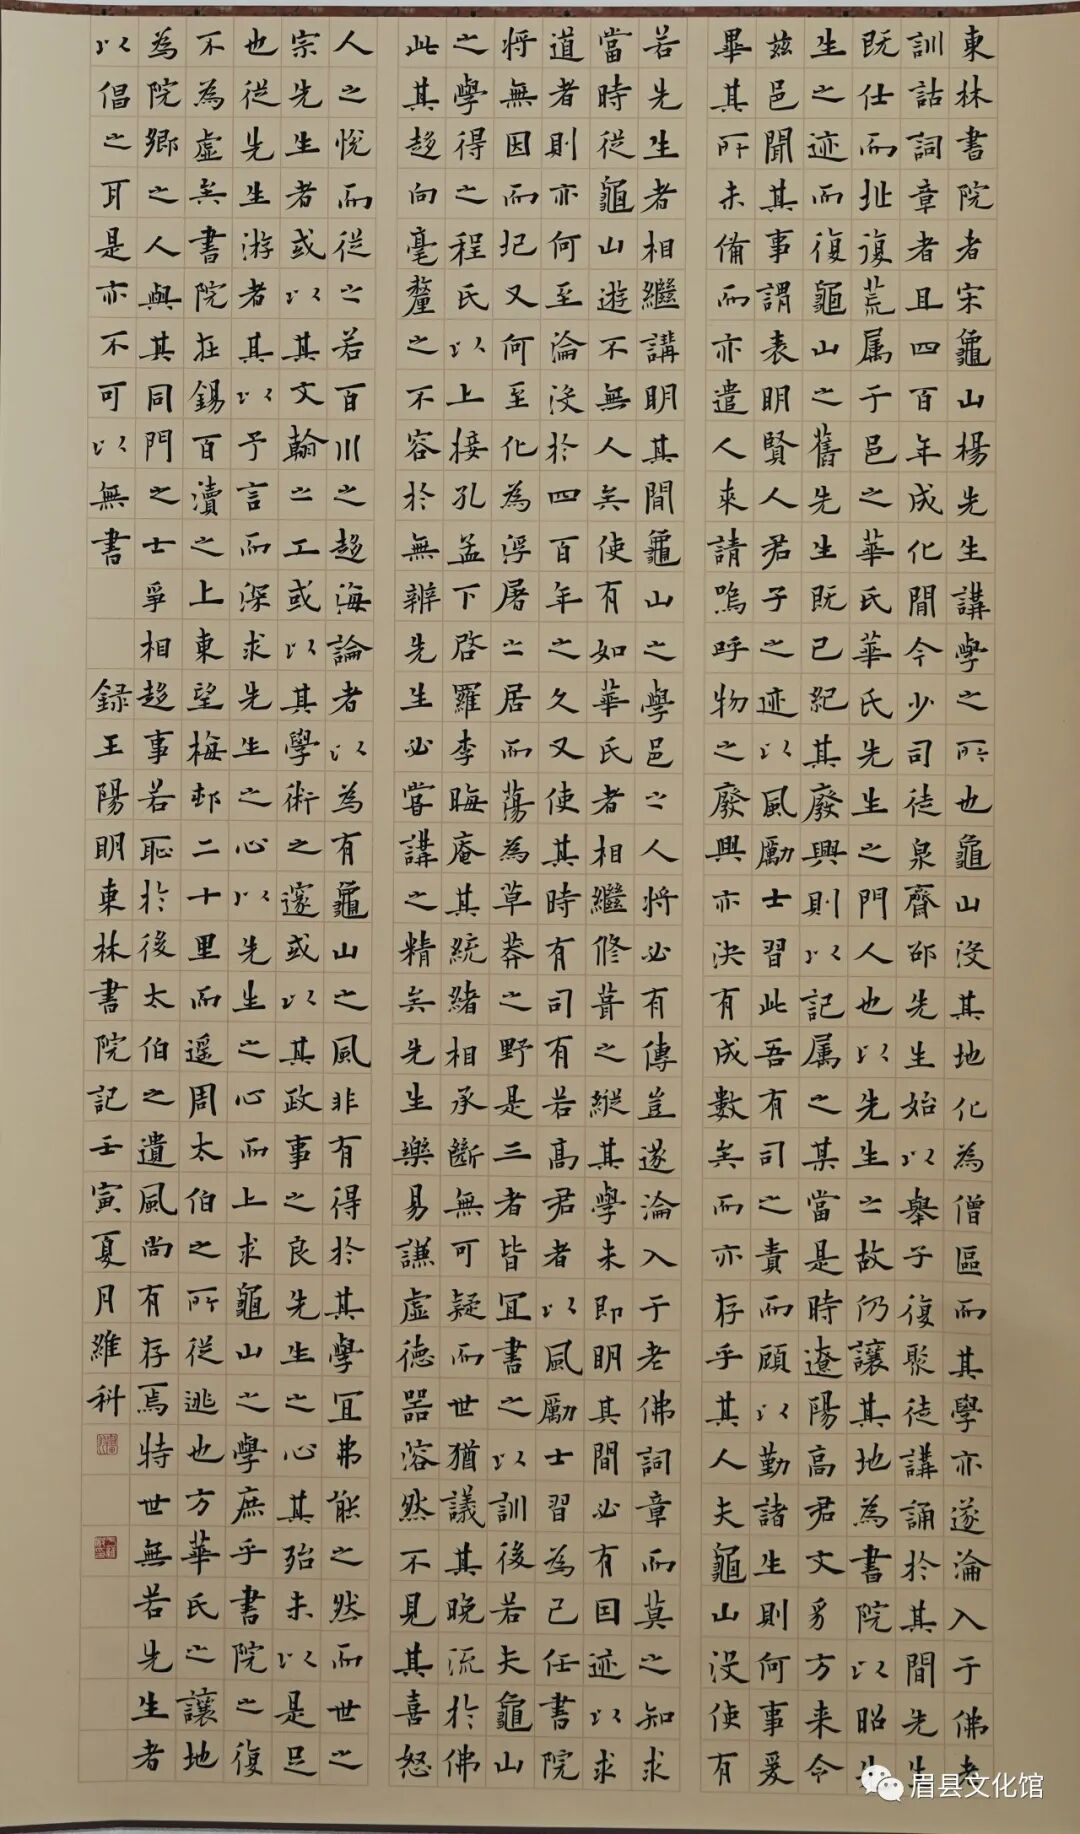 東林書院者宋龜山楊先生講學之所也龜山没其地化為僧區而其學亦遂淪入于佛老
訓詁詞章者且四百年成化間今少司徒泉齊邵先生始以舉子復聚徒講誦於其間先生
既仕而址復荒属于邑之華氏華氏先生之門人也以先生之故仍讓其地為書院以昭先
生之迹而復龜山之舊先生既已紀其廢興則以記属之某當是時遼陽高君文豸方来令
茲邑聞其事謂表明賢人君子之迹以風勵士習此吾有司之責而顧以勤諸生則何事爰
畢其所未備而亦遣人来請嗚呼物之廢興亦決有成數矣而亦存乎其人夫龜山没使有
若先生者相繼講明其間龜山之學邑之人将必有傳豈遂淪入于老佛詞章而莫之知求
當時從龜山遊不無人矣使有如華氏者相繼修葺之縱其學未即明其間必有因迹以求
道者則亦何至淪没於四百年之久又使其時有司有若高君者以風勵士習為己任書院
将無因而圮又何至化為浮屠之居而蕩為草莽之野是三者皆宜書之以訓後若夫龜山
之學得之程氏以上接孔孟下啓羅李晦庵其統緒相承斷無可疑而世猶議其晚流於佛
此其趍向毫釐之不容於無辨先生必嘗講之精矣先生樂易謙虚德器溶然不見其喜怒
人之悅而從之若百川之趍海論者以為有龜山之風非有得於其學宜弗能之然而世之
宗先生者或以其文翰之工或以其學術之邃或以其政事之良先生之心其殆未以是足
也從先生游者其以予言而深求先生之心以先生之心而上求龜山之學庶乎書院之復
不為虚矣書院在錫百瀆之上東望梅邨二十里而遥周太伯之所從逃也方華氏之讓地
為院鄉之人與其同門之士爭相趍事若恥於後太伯之遺風尚有存焉特世無若先生者
以倡之耳是亦不可以無書 録王陽明東林書院記壬寅夏月維科
眉县文化馆